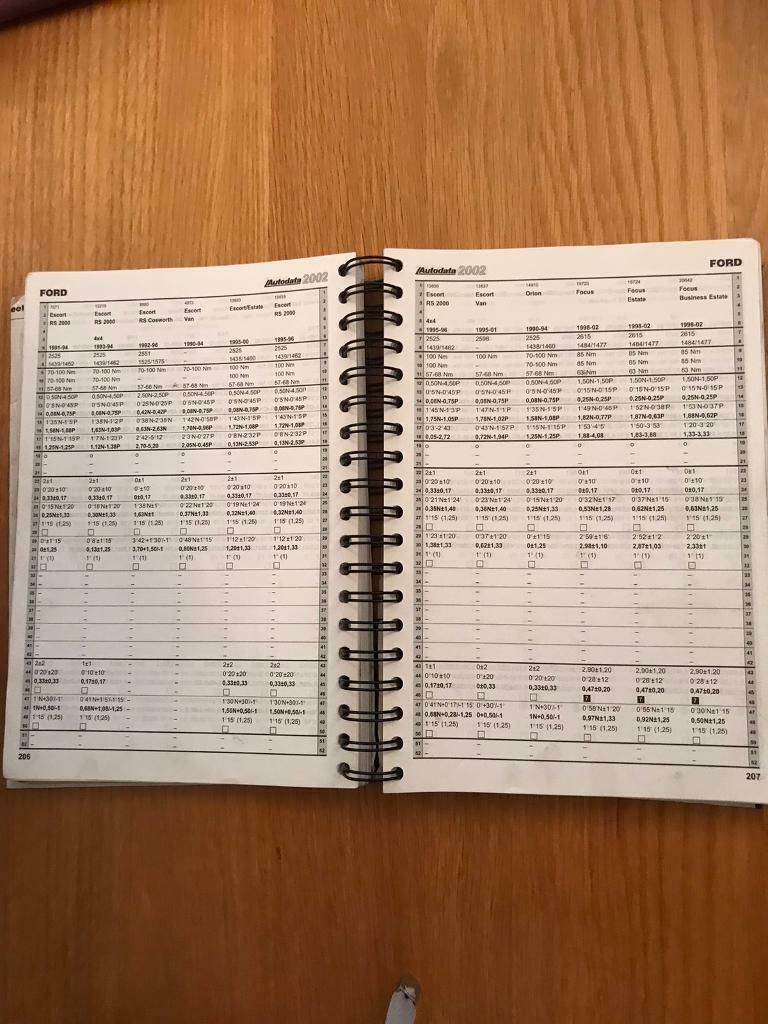 FORD
Autodata 2002
1 7071 13219 8993 4973 13633 13635 1
2 Escort Escort Escort Escort Escort/Estate Escort 2
3 RS 2000 RS 2000 RS Cosworth Van RS 2000 3
4x4
1991-94 1993-94 1992-96 1990-94 1995-00 1995-96
7 2525 2525 2551 – 2525 2525
8 1439/1462 1439/1462 1525/1575 – 1435/1460 1439/1462
9 70-100 Nm 70-100 Nm 70-100 Nm 70-100 Nm 100 Nm 100 Nm
10 70-100 Nm 70-100 Nm – – 100 Nm 100 Nm
11 57-68 Nm 57-68 Nm 57-68 Nm 57-68 Nm 57-68 Nm 57-68 Nm
12 0,50N-4,50P 0,50N-4,50P 2,50N-2,50P 0,50N-4,50P 0,50N-4,50P 0,50N-4,50P
13 0°5'N-0°45'P 0°5'N-0°45'P 0°25'N-0°25'P 0°5'N-0°45'P 0°5'N-0°45'P 0°5'N-0°45'P
14 0,08N-0,75P 0,08N-0,75P 0,42N-0,42P 0,08N-0,75P 0,08N-0,75P 0,08N-0,75P
15 1°35'N-1°5'P 1°38'N-1°2'P 0°38'N-2°38'N 1°42'N-0°58'P 1°43'N-1°5'P 1°43'N-1°5'P
16 1,58N-1,08P 1,63N-1,03P 0,63N-2,63N 1,70N-0,96P 1,72N-1,08P 1,72N-1,08P
17 1°15'N-1°15'P 1°7'N-1°23'P 2°42'-5°12' 2°3'N-0°27'P 0°8'N-2°32'P 0°8'N-2°32'P
18 1,25N-1,25P 1,12N-1,38P 2,70-5,20 2,05N-0,45P 0,13N-2,53P 0,13N-2,53P
22 2±1 2±1 0±1 2±1 2±1 2±1
23 0°20'±10' 0°20'±10' 0°±10' 0°20'±10' 0°20'±10' 0°20'±10'
24 0,33±0,17 0,33±0,17 0±0,17 0,33±0,17 0,33±0,17 0,33±0,17
25 0°15'N±1°20' 0°18'N±1°20' 1°38'N±1° 0°22'N±1°20' 0°19'N±1°24' 0°19'N±1°24'
26 0,25N±1,33 0,30N±1,33 1,63N±1 0,37N±1,33 0,32N±1,40 0,32N±1,40
27 1°15' (1,25) 1°15' (1,25) 1°15' (1,25) 1°15' (1,25) 1°15' (1,25) 1°15' (1,25)
29 0°±1°15' 0°8'±1°15' 3°42'+1°30'/-1° 0°48'N±1°15' 1°12'±1°20' 1°12'±1°20'
30 0±1,25 0,13±1,25 3,70+1,50/-1 0,80N±1,25 1,20±1,33 1,20±1,33
31 1° (1) 1° (1) 1° (1) 1° (1) 1° (1) 1° (1)
43 2±2 1±1 2±2 2±2
44 0°20'±20' 0°10'±10' 0°20'±20' 0°20'±20'
45 0,33±0,33 0,17±0,17 0,33±0,33 0,33±0,33
47 1°N+30'/-1° 0°41'N+1°5'/-1°15' 1°30'N+30'/-1° 1°30'N+30'/-1°
48 1N+0,50/-1 0,68N+1,08/-1,25 1,50N+0,50/-1 1,50N+0,50/-1
49 1°15' (1,25) 1°15' (1,25) 1°15' (1,25) 1°15' (1,25)
206
Autodata 2002
FORD
1 13636 13637 14910 19723 19724 20642 1
2 Escort Escort Orion Focus Focus Focus 2
3 RS 2000 Van Estate Business Estate 3
4x4
1995-96 1995-01 1990-94 1998-02 1998-02 1998-02
7 2525 2598 2525 2615 2615 2615
8 1439/1462 – 1438/1460 1484/1477 1484/1477 1484/1477
9 100 Nm 100 Nm 70-100 Nm 85 Nm 85 Nm 85 Nm
10 100 Nm – 70-100 Nm 85 Nm 85 Nm 85 Nm
11 57-68 Nm 57-68 Nm 57-68 Nm 63 Nm 63 Nm 63 Nm
12 0,50N-4,50P 0,50N-4,50P 0,50N-4,50P 1,50N-1,50P 1,50N-1,50P 1,50N-1,50P
13 0°5'N-0°45'P 0°5'N-0°45'P 0°5'N-0°45'P 0°15'N-0°15'P 0°15'N-0°15'P 0°15'N-0°15'P
14 0,08N-0,75P 0,08N-0,75P 0,08N-0,75P 0,25N-0,25P 0,25N-0,25P 0,25N-0,25P
15 1°45'N-1°3'P 1°47'N-1°1'P 1°35'N-1°5'P 1°49'N-0°46'P 1°52'N-0°38'P 1°53'N-0°37'P
16 1,75N-1,05P 1,78N-1,02P 1,58N-1,08P 1,82N-0,77P 1,87N-0,63P 1,88N-0,62P
17 0°3'-2°43' 0°43'N-1°57'P 1°15'N-1°15'P 1°53'-4°5' 1°50'-3°53' 1°20'-3°20'
18 0,05-2,72 0,72N-1,94P 1,25N-1,25P 1,88-4,08 1,83-3,88 1,33-3,33
22 2±1 2±1 2±1 0±1 0±1 0±1
23 0°20'±10' 0°20'±10' 0°20'±10' 0°±10' 0°±10' 0°±10'
24 0,33±0,17 0,33±0,17 0,33±0,17 0±0,17 0±0,17 0±0,17
25 0°21'N±1°24' 0°23'N±1°24' 0°15'N±1°20' 0°32'N±1°17' 0°37'N±1°15' 0°38'N±1°15'
26 0,35N±1,40 0,38N±1,40 0,25N±1,33 0,53N±1,28 0,62N±1,25 0,63N±1,25
27 1°15' (1,25) 1°15' (1,25) 1°15' (1,25) 1°15' (1,25) 1°15' (1,25) 1°15' (1,25)
29 1°23'±1°20' 0°37'±1°20' 0°±1°15' 2°59'±1°6' 2°52'±1°2' 2°20'±1°
30 1,38±1,33 0,62±1,33 0±1,25 2,98±1,10 2,87±1,03 2,33±1
31 1° (1) 1° (1) 1° (1) 1° (1) 1° (1) 1° (1)
43 1±1 0±2 2±2 2,90±1,20 2,90±1,20 2,90±1,20
44 0°10'±10' 0°±20' 0°20'±20' 0°28'±12' 0°28'±12' 0°28'±12'
45 0,17±0,17 0±0,33 0,33±0,33 0,47±0,20 0,47±0,20 0,47±0,20
46 7 7 7
47 0°41'N+0°17'/-1°15' 0°+30'/-1° 1°N+30'/-1° 0°58'N±1°20' 0°55'N±1°15' 0°30'N±1°15'
48 0,68N+0,28/-1,25 0+0,50/-1 1N+0,50/-1 0,97N±1,33 0,92N±1,25 0,50N±1,25
49 1°15' (1,25) 1°15' (1,25) 1°15' (1,25) 1°15' (1,25) 1°15' (1,25) 1°15' (1,25)
207